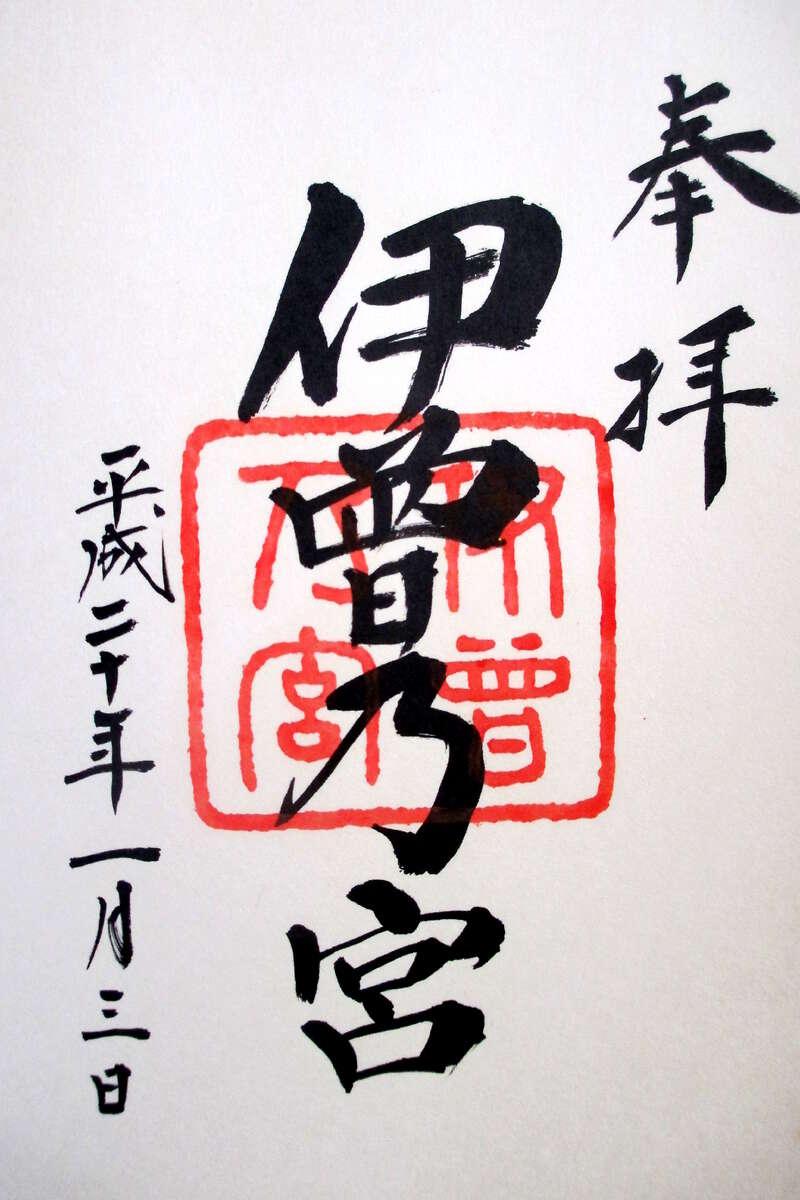 奉拝
伊曽乃宮
平成二十年一月三日
曽
宮